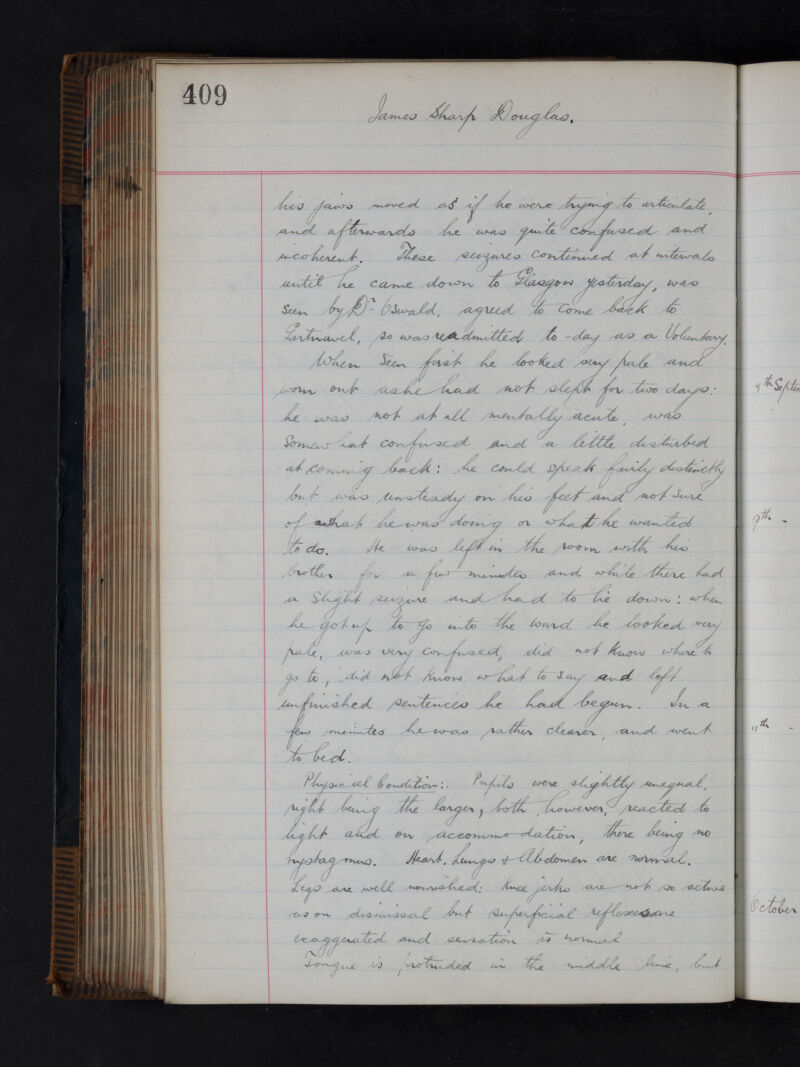 409
James Sharp Douglas.
his jaws moved as if he were trying to articulate,
and afterwards he was quite confused and
incoherent. These seizures continued at intervals
until he came down to Glasgow yesterday, was
seen by Dr. Oswald, agreed to come back to
Gartnavel, so was readmitted to-day as a Voluntary.
When seen first he looked very pale and
worn out as he had not slept for two days:
he was not at all mentally acute, was
somewhat confused and a little disturbed
at coming back: he could speak fairly distinctly
but was unsteady on his feet and not sure
of what he was doing or what he wanted
to do. He was left in the room with his
brother for a few minutes and while there had
a slight seizure and had to lie down: when
he got up to go into the ward he looked very
pale, was very confused, did not know where to
go to, did not know what to say and left
unfinished sentences he had begun. In a
few minutes he was rather clearer, and went
to bed.
Physical Condition:. Pupils were slightly unequal,
right being the larger, both, however, reacted to
light and on accommodation, there being no
nystagmus. Heart. Lungs & Abdomen are normal.
Legs are well nourished: knee jerks are not so active
as on dismissal but superficial reflexes are
exaggerated and sensation is normal
Tongue is protruded in the middle line, but
th Septem
th -
11th -
October